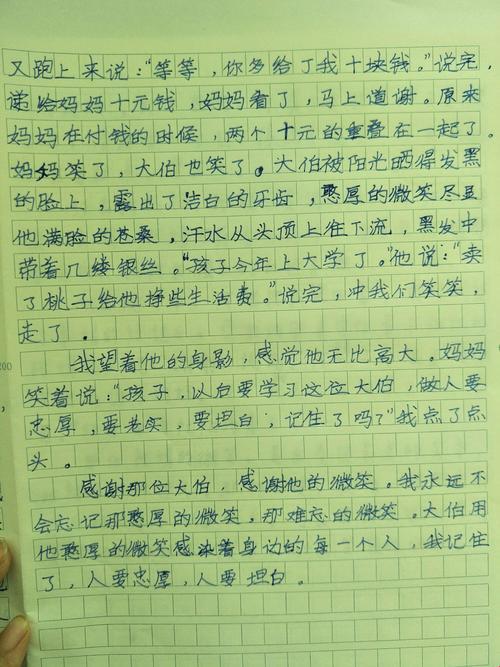 又跑上来说：“等等，你多给了我十块钱。”说完，
递给妈妈十元钱，妈妈看了，马上道谢。原来
妈妈在付钱的时候，两个十元的重叠在一起了。
妈妈笑了，大伯也笑了。大伯被阳光晒得发黑
的脸上，露出了洁白的牙齿，憨厚的微笑尽显
他满脸的苍桑，汗水从头顶上往下流，黑发中
带着几缕银丝。“孩子今年上大学了。”他说：“卖
了桃子给他挣些生活费。”说完，冲我们笑笑，
走了．
200
我望着他的身影，感觉他无比高大。妈妈
笑着说：“孩子，以后要学习这位大伯，做人要
忠厚，要老实，要坦白，记住了吗？”我点了点
头。
感谢那位大伯，感谢他的微笑。我永远不
会忘记那憨厚的微笑，那难忘的微笑。大伯用
他憨厚的微笑感染着身边的每一个人，我记住
了，人要忠厚，人要坦白。